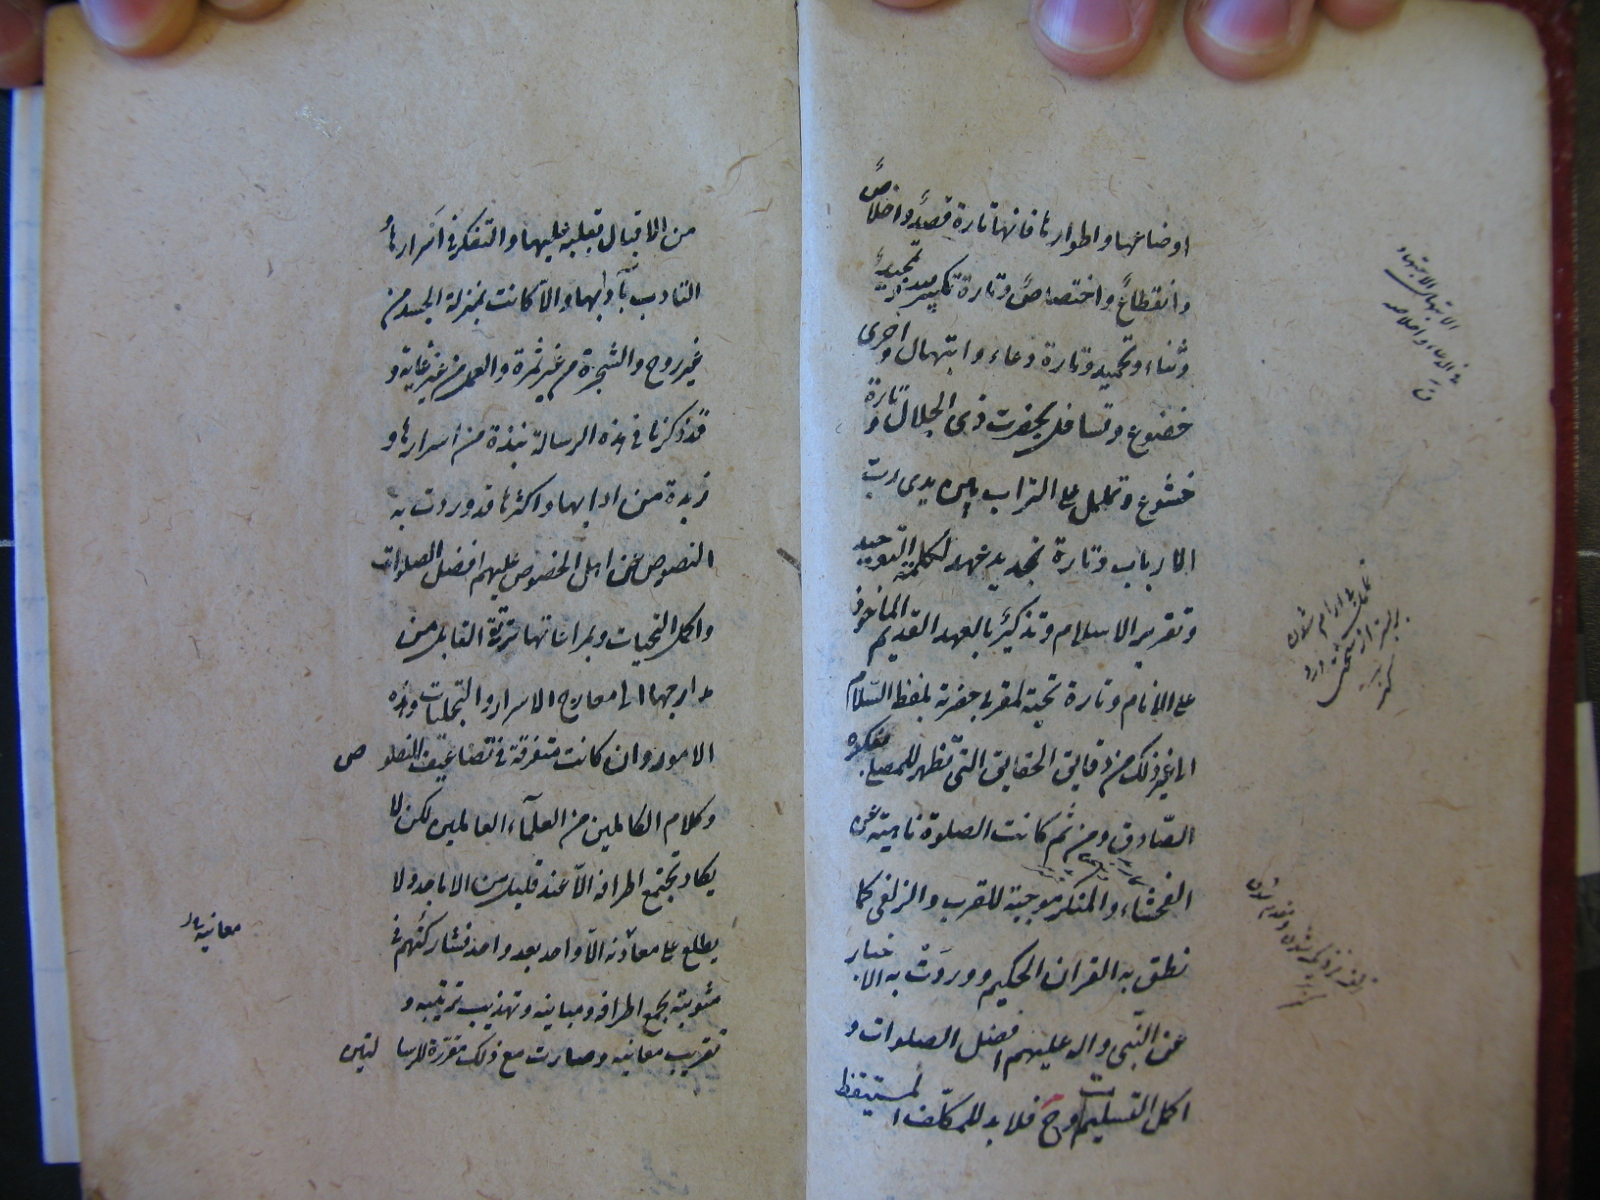 اوضاعها واطوارها فانها تارة قصدٌ واخلاصٌ
وانقطاعٌ واختصاصٌ وتارة تكبير وتمجيدٌ
وثناء وتحميد وتارة دعاء وابتهال واخرى
خضوع وتسافل بحضرت ذى الجلال وتارة
خشوع وتململ على التراب بين يدى رب
الارباب وتارة تجديد عهد لكلمة التوحيد
وتقرير الاسلام وتذكيرٌ بالعهد القديم الماخوذ
على الانام وتارة تحية لمقربى حضرته بلفظ السّلام
الى غير ذلك من دقايق الحقايق التى تظهر للمصلى بفكره
الصّادق ومن ثم كانت الصلوة ناهية عن
الفحشاء والمنكر موجبة للقرب والزلفى كما
نطق به القران الحكيم ووردَتْ به الاخبار
عن النّبى واله عليهم افضل الصلوات و
اكمل التسليمات وح فلا بد للمكلّف المستيقظ
الابتهال الاجتهاد
فى الدعاء واخلاصه
ق
من الاقبال بقلبه عليها والتفكر فى اَسرارها
التادب بآدابها والّا كانت بمنزلة الجسد من
غير روح والشجرة من غير ثمرة والعمل من غير غاية و
قد ذكرنا فى هذه الرسالة نبذة من اسرارها و
زبدة من ادابها واكثرها قد وردت به
النصوص عن اهل الخصوص عليهم افضل الصلوات
واكمل التحيات وبمراعاتها ترتقى القابل من
مدارجها الى معارج الاسرار والتجليات وهذه
الامور وان كانت متفرقة فى تضاعيف النصوص
وكلام الكاملين من العلمآء العالمين لكن لا
يكاد تجتمع اطرافه الّا عند قليل من الاماجد ولا
يطلع على معادنه الّا واحد بعد واحد فشاركتهم فى
مثوبته بجمع اطرافه ومبانيه وتهذيب ترتيبه و
تقريب معانيه وصارت مع ذلك مقرّرة للرسالتين
معانيه